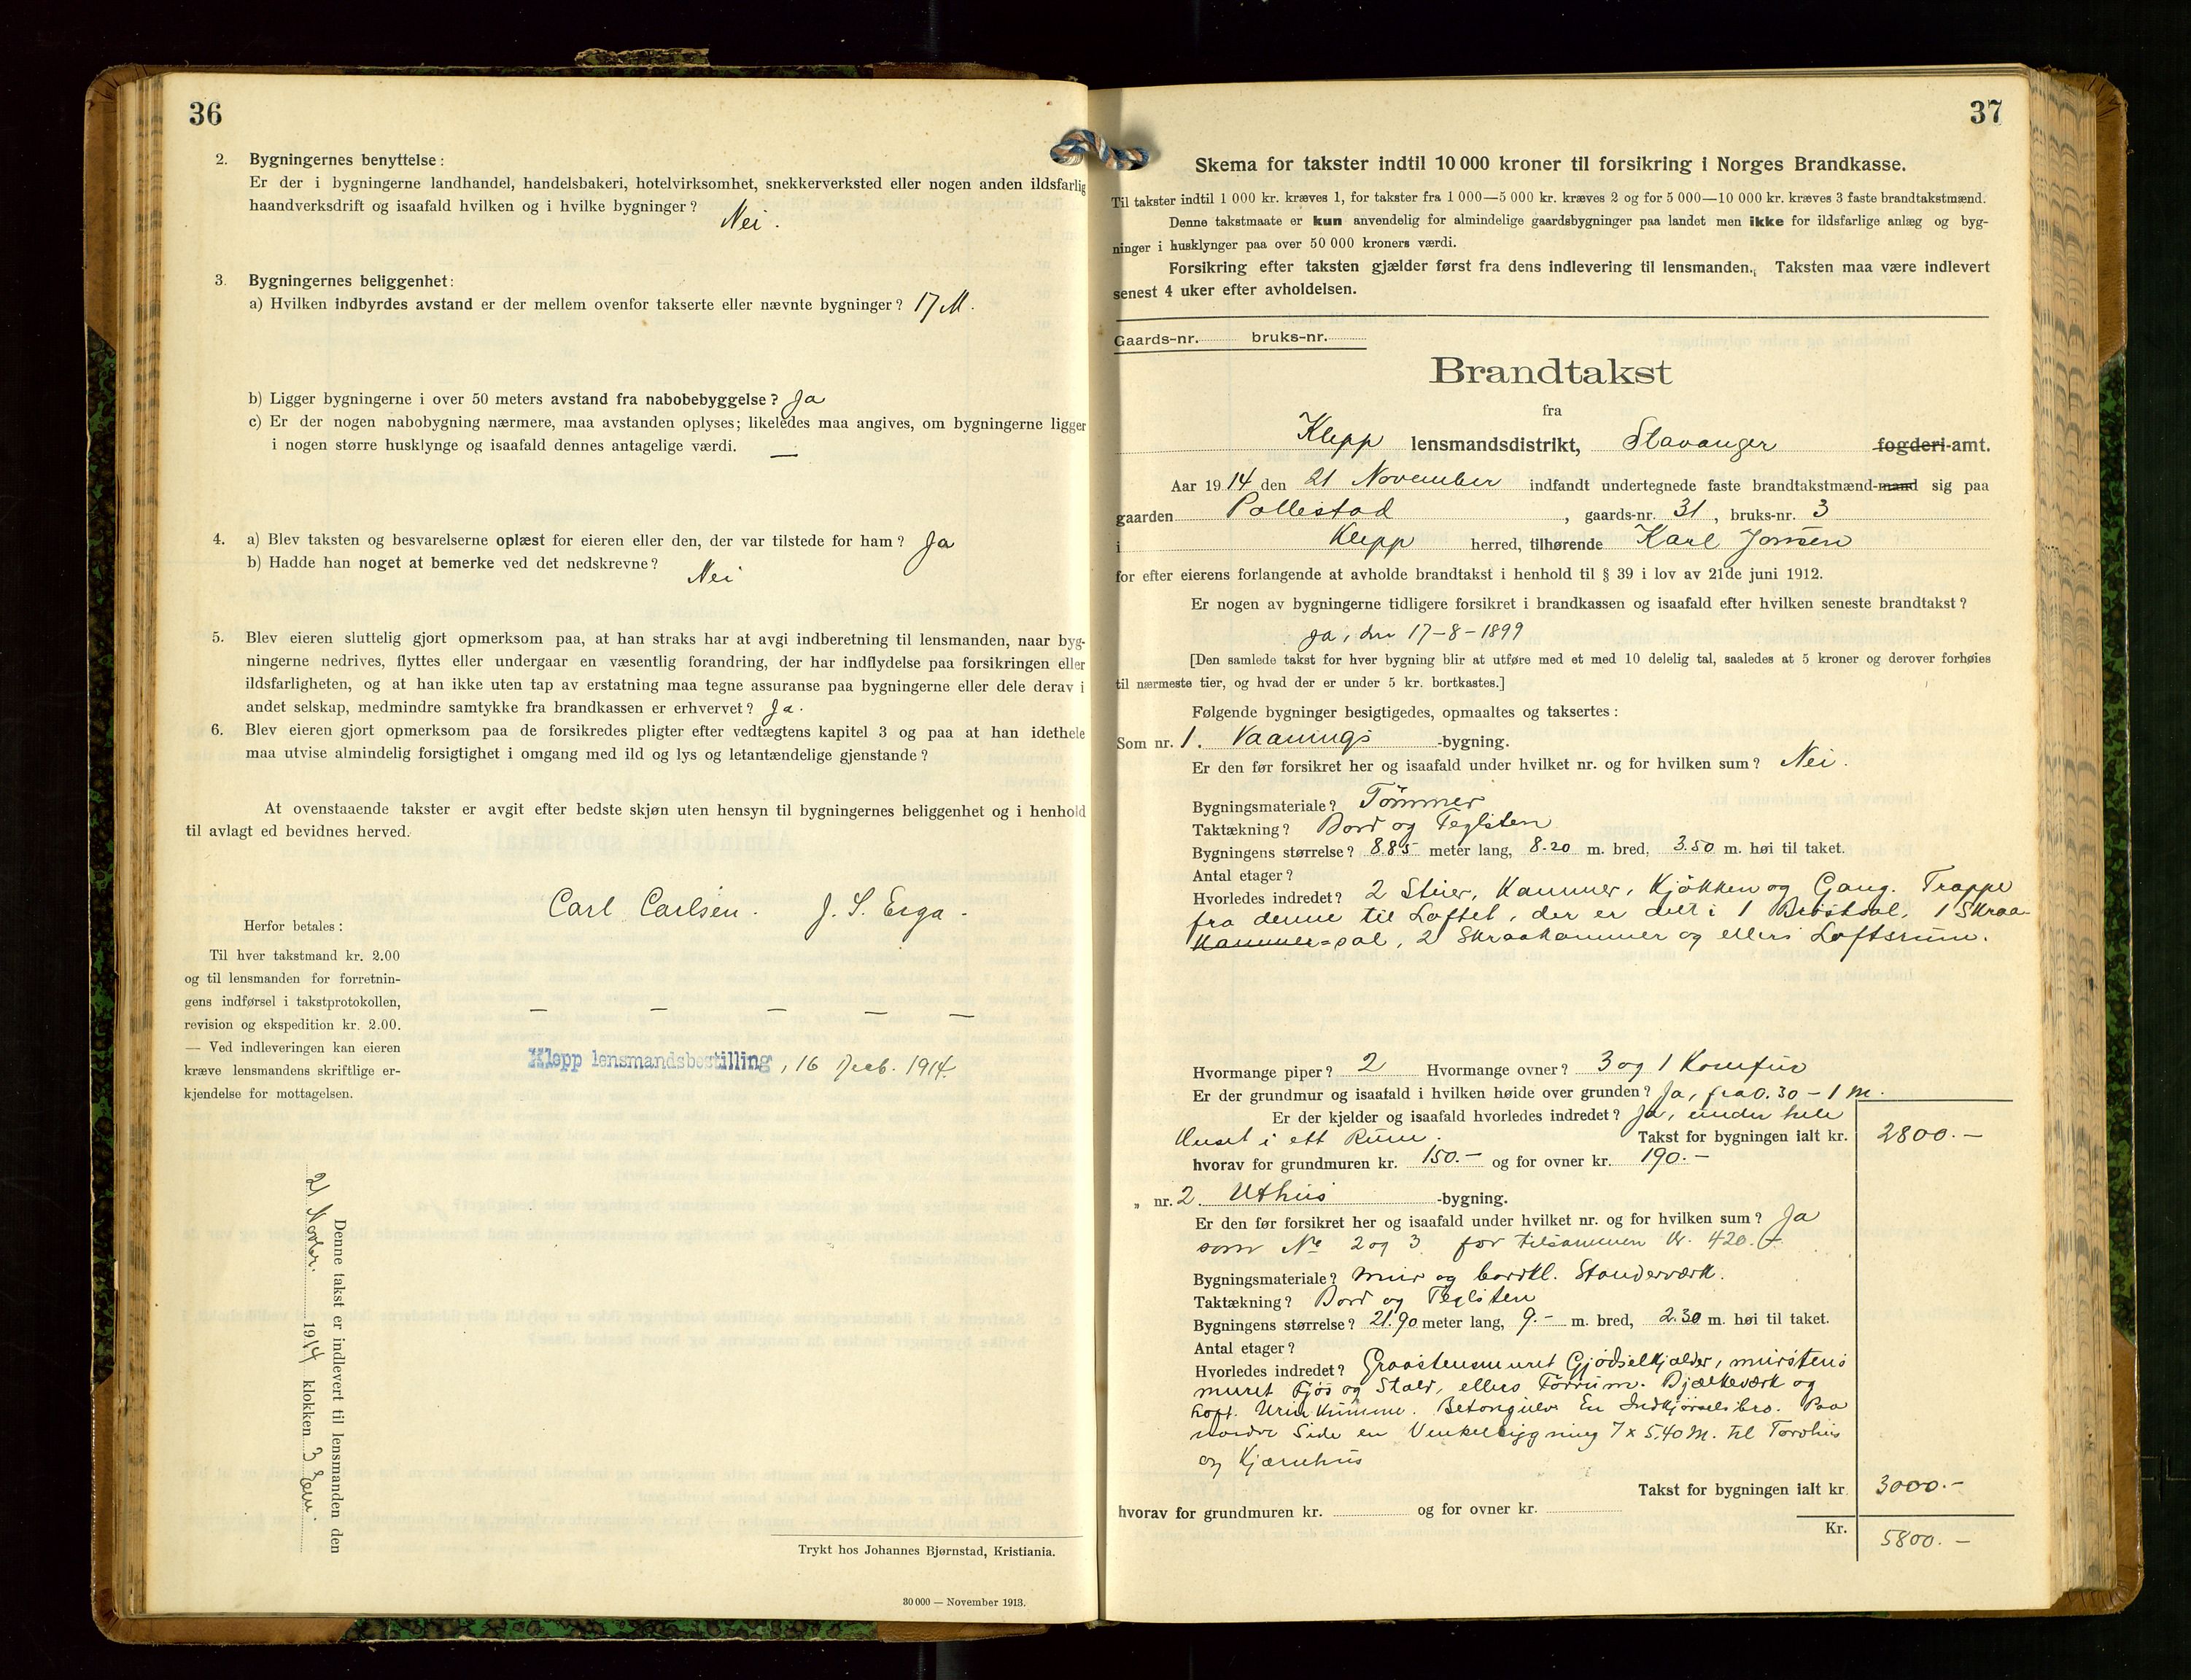 36
2. Bygningernes benyttelse:
Er der i bygningerne landhandel, handelsbakeri, hotelvirksomhet, snekkerverksted eller nogen anden ildsfarlig
haandverksdrift og isaafald hvilken og i hvilke bygninger? Nei.
3. Bygningernes beliggenhet:
a) Hvilken indbyrdes avstand er der mellem ovenfor takserte eller nævnte bygninger? 17 M.
b) Ligger bygningerne i over 50 meters avstand fra nabobebyggelse? Ja
c) Er der nogen nabobygning nærmere, maa avstanden oplyses; likeledes maa angives, om bygningerne ligger
i nogen større husklynge og isaafald dennes antagelige værdi. —
4. a) Blev taksten og besvarelserne oplæst for eieren eller den, der var tilstede for ham? Ja
b) Hadde han noget at bemerke ved det nedskrevne? Nei
5. Blev eieren sluttelig gjort opmerksom paa, at han straks har at avgi indberetning til lensmanden, naar byg-
ningerne nedrives, flyttes eller undergaar en væsentlig forandring, der har indflydelse paa forsikringen eller
ildsfarligheten, og at han ikke uten tap av erstatning maa tegne assuranse paa bygningerne eller dele derav i
andet selskap, medmindre samtykke fra brandkassen er erhvervet? Ja.
6. Blev eieren gjort opmerksom paa de forsikredes pligter efter vedtægtens kapitel 3 og paa at han idethele
maa utvise almindelig forsigtighet i omgang med ild og lys og letantændelige gjenstande?
At ovenstaaende takster er avgit efter bedste skjøn uten hensyn til bygningernes beliggenhet og i henhold
til avlagt ed bevidnes herved.
Carl Carlsen. J. S. Erga.
Herfor betales:
Til hver takstmand kr. 2.00
og til lensmanden for forretnin-
gens indførsel i takstprotokollen,
revision og ekspedition kr. 2.00.
— Ved indleveringen kan eieren
kræve lensmandens skriftlige er-
kjendelse for mottagelsen.
— — — — —
Klepp lensmandsbestilling, 16 Decb. 1914.
Denne takst er indlevert til lensmanden den
21 Novbr. 1914 klokken 3 Em.
Trykt hos Johannes Bjørnstad, Kristiania.
30 000 — November 1913.
37
Skema for takster indtil 10 000 kroner til forsikring i Norges Brandkasse.
Til takster indtil 1 000 kr. kræves 1, for takster fra 1 000—5 000 kr. kræves 2 og for 5 000—10 000 kr. kræves 3 faste brandtakstmænd.
Denne takstmaate er kun anvendelig for almindelige gaardsbygninger paa landet men ikke for ildsfarlige anlæg og byg-
ninger i husklynger paa over 50 000 kroners værdi.
Forsikring efter taksten gjælder først fra dens indlevering til lensmanden. Taksten maa være indlevert
senest 4 uker efter avholdelsen.
Gaards-nr. bruks-nr.
Brandtakst
fra
Klepp lensmandsdistrikt, Stavanger fogderi-amt.
Aar 1914 den 21 November indfandt undertegnede faste brandtakstmænd-mand sig paa
gaarden Pollestad, gaards-nr. 31, bruks-nr. 3
i Klepp herred, tilhørende Karl Jonsen
for efter eierens forlangende at avholde brandtakst i henhold til § 39 i lov av 21de juni 1912.
Er nogen av bygningerne tidligere forsikret i brandkassen og isaafald efter hvilken seneste brandtakst?
Ja, den 17-8-1899
[Den samlede takst for hver bygning blir at utføre med et med 10 delelig tal, saaledes at 5 kroner og derover forhøies
til nærmeste tier, og hvad der er under 5 kr. bortkastes.]
Følgende bygninger besigtigedes, opmaaltes og taksertes:
Som nr. 1. Vaanings -bygning.
Er den før forsikret her og isaafald under hvilket nr. og for hvilken sum? Nei.
Bygningsmateriale? Tømmer
Taktækning? Bord og Teglsten
Bygningens størrelse? 8.85 meter lang, 8.20 m. bred, 3.50 m. høi til taket.
Antal etager?
Hvorledes indredet? 2 Stuer, Kammer, Kjøkken og Gang. Trappe
fra denne til Loftet, der er delt i 1 Bröstsal, 1 Skraa-
Kammer=sal, 2 Skraakammer og ellers Loftsrum.
Hvormange piper? 2 Hvormange ovner? 3 og 1 Komfur
Er der grundmur og isaafald i hvilken høide over grunden? Ja, fra 0.30 - 1 M.
Er der kjelder og isaafald hvorledes indredet? Ja, under hele
Huset i ett Rum. Takst for bygningen ialt kr. 2800.—
hvorav for grundmuren kr. 150.— og for ovner kr. 190.—
„ nr. 2 Uthus -bygning.
Er den før forsikret her og isaafald under hvilket nr. og for hvilken sum? Ja
som No 2 og 3 for tilsammen Kr. 420.—
Bygningsmateriale? Mur og bordkl. Standerværk.
Taktækning? Bord og Teglsten
Bygningens størrelse? 21.90 meter lang, 9.— m. bred, 2.30 m. høi til taket.
Antal etager?
Hvorledes indredet? Graastensmuret Gjødselkjælder, murstens
muret Fjøs og Stald, ellers Förrum. Bjælkeværk og
Loft. Urinkumme. Betongulv En Indkjørselsbro. Paa
nordre Side en Vinkelbygning 7 x 5,40 M. til Torvhus
og Kjærnehus
Takst for bygningen ialt kr 3000.—
hvorav for grundmuren kr. og for ovner kr.
Kr. 5800.—